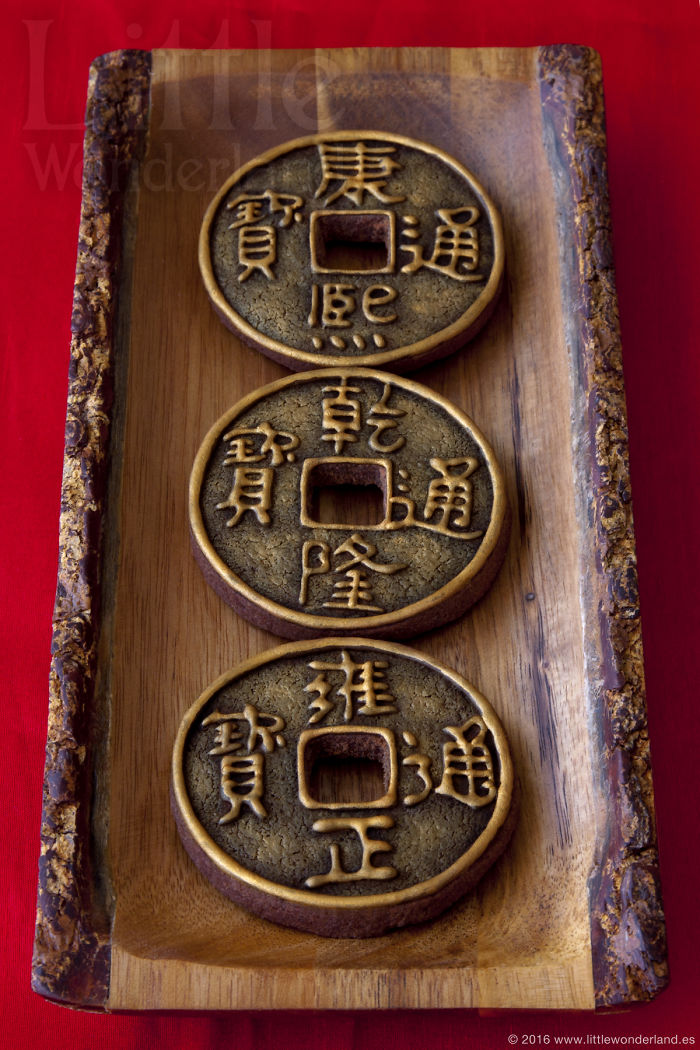 Little
Wonderl
康熙通寳
乾隆通寳
雍正通寳
© 2016 www.littlewonderland.es